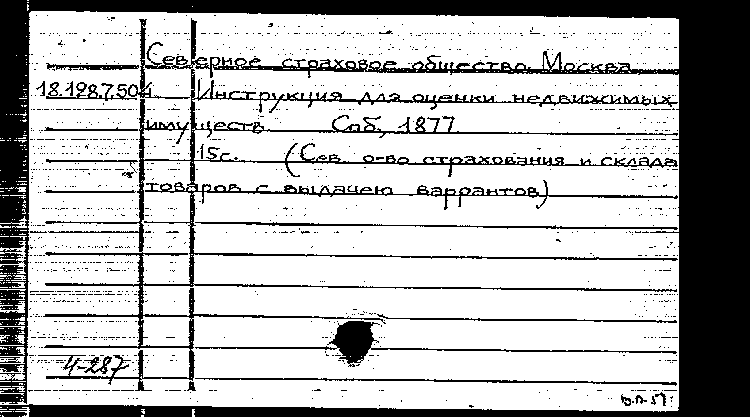 Северное страховое общество. Москва
18.198.7.504 Инструкция для оценки недвижимых
имуществ. Спб, 1877
15с. (Сев. о-во страхования и склада
товаров с выдачею варрантов)
4-287